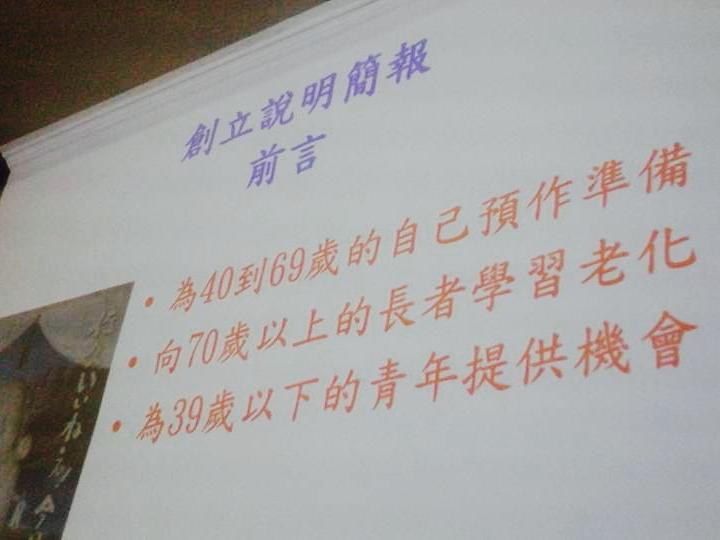 創立說明簡報
前言
• 為40到69歲的自己預作準備
• 向70歲以上的長者學習老化
• 為39歲以下的青年提供機會